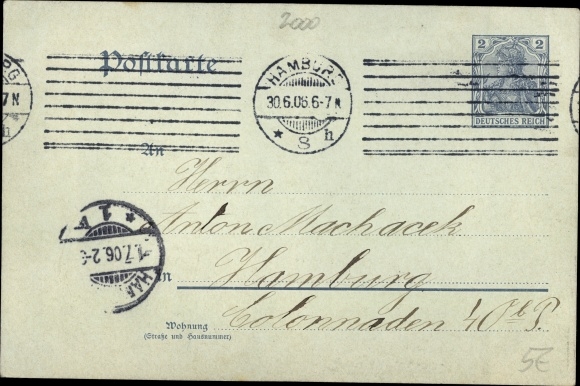 2000
2 2
Postkarte
HAMBURG
30.6.06.6-7 N
* 8 h
DEUTSCHES REICH
7 N
h
An
Herrn
Anton Machacek
* 1 *
1.7.06.2-
HAM
in
Hamburg
Colonnaden 40
Wohnung
(Straße und Hausnummer)
5€